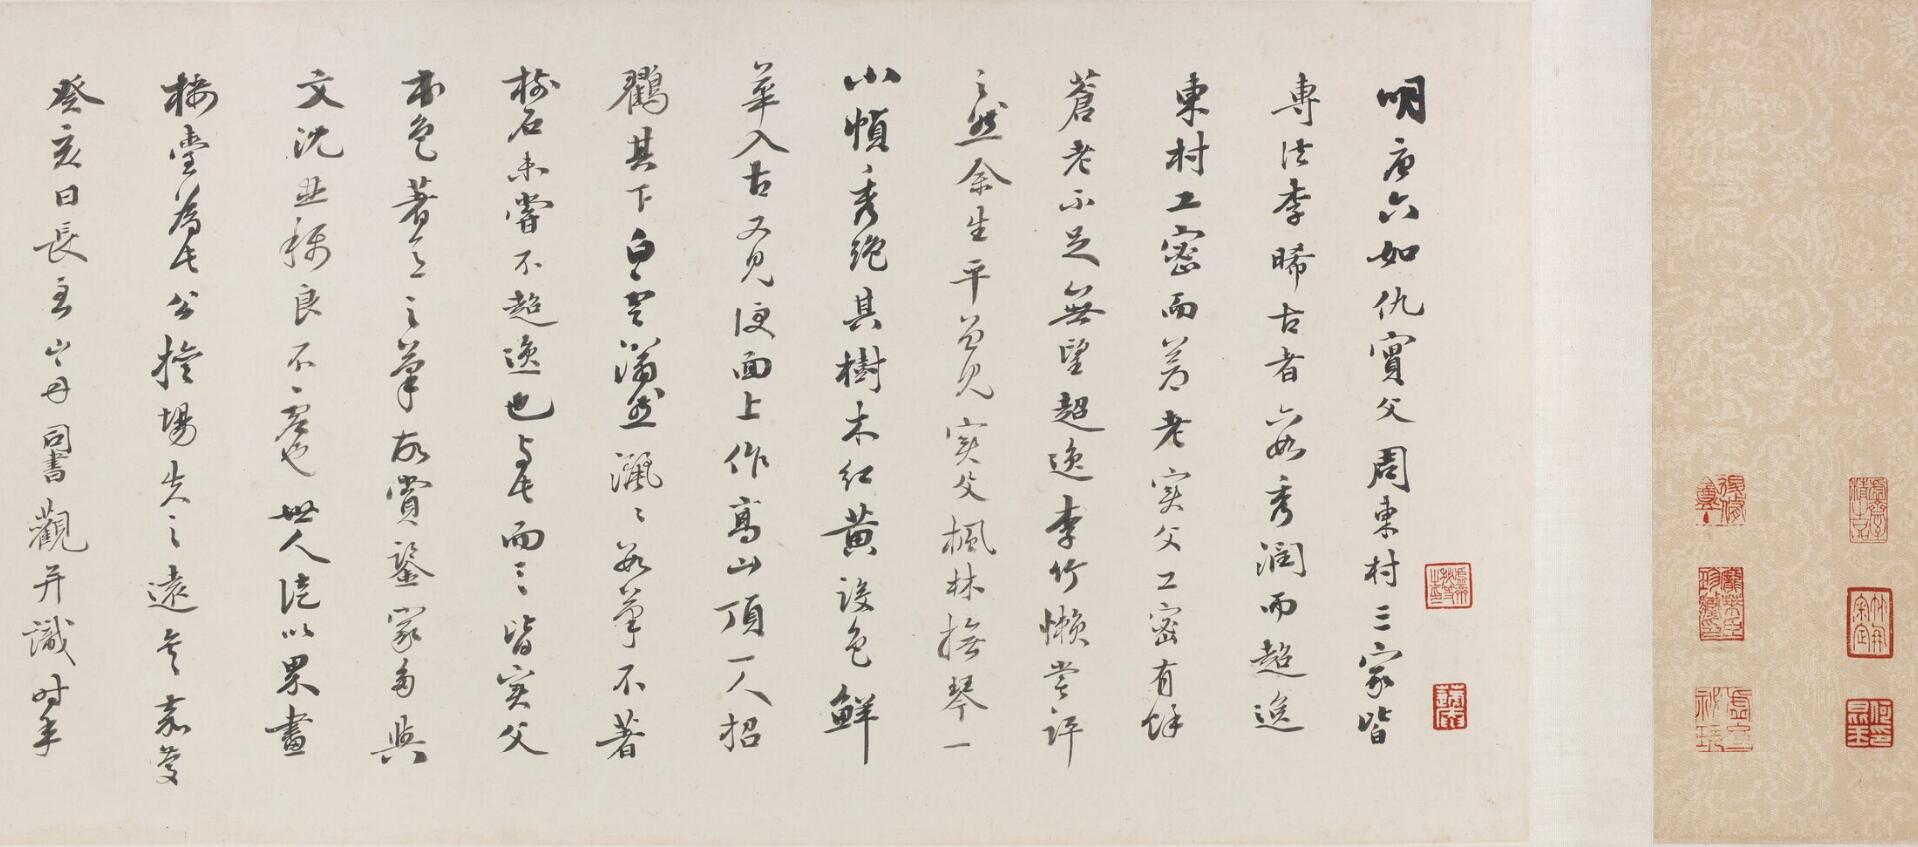 明唐六如仇實父周東村三家皆
專法李晞古者六如秀潤而超逸
東村工密而蒼老實父工密有餘
蒼老不足無望超逸李竹懶嘗評
之然余生平曾見實父楓林撫琴一
小幀秀絶其樹木紅黃設色鮮
華入古又見便面上作高山頂一人招
鶴其下白雲滃然渢〻數筆不著
樹石未嘗不超逸也與此而三皆實父
本色著意之筆故賞鑒家多與
文沈並稱良不虛也世人徒以界畫
樓臺為此公擅場失之遠矣嘉慶
癸亥日長至 同書觀并識時年